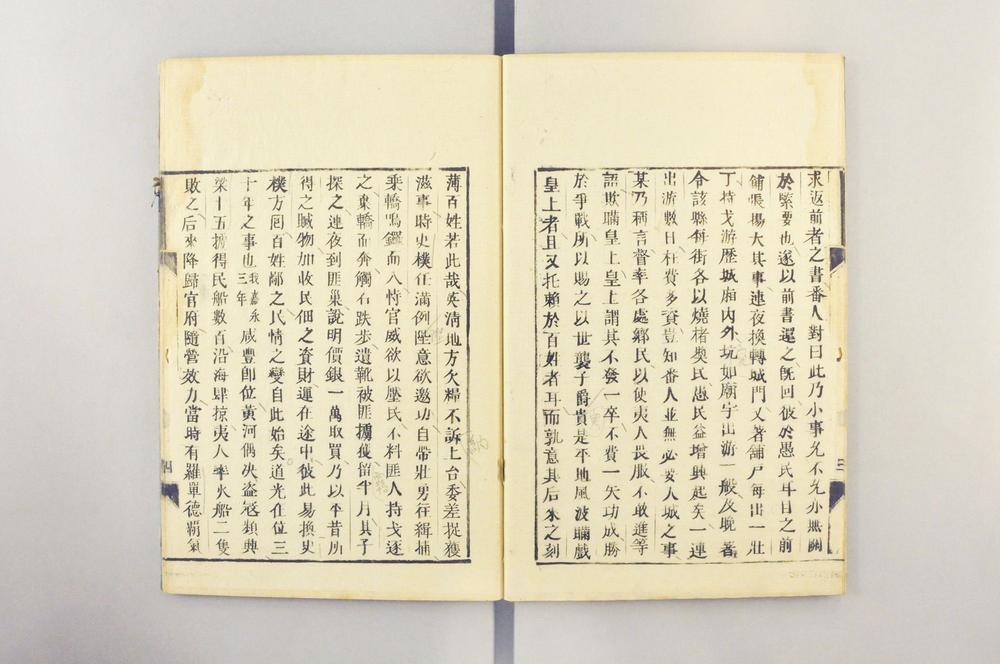 求返前者之書番人對曰此乃小事允不允亦無關
於緊要也遂以前書還之旣回彼於愚民耳目之前
鋪張揚大其事連夜換轉城門又著鋪戶每出一壯
丁持戈游歷城廂內外坑如廟宇出游一般及晚著
令該縣每街各以燒楮奬民愚民益增興起矣一連
出游數日枉費多資豈知番人並無必要入城之事
某乃稱言督率各處鄉民以使夷人畏服不敢進等
語欺瞞皇上皇上謂其不發一卒不費一矢功成勝
於爭戰所以賜之以世襲子爵貴是平地風波瞞戲
皇上者且又托賴於百姓者耳而孰意其后來之刻
薄百姓若此哉英清地方欠糧不訴上台委差捉獲
滋事時史樸任滿例陞意欲邀功自帶壯勇往緝捕
乘轎鳴鑼而入恃官威欲以壓民不料匪人持戈逐
之棄轎而奔觸石跌步遺靴被匪擄獲留半月其子
探之連夜到匪巢說明價銀一萬取買乃以平昔所
得之贓物加收民佃之資財運在途中彼此易換史
樸方囘百姓鄙之民情之變自此始矣道光在位三
十年之事也我嘉永三年咸豐即位黃河偶決盜寇類典
梁十五擄得民船數百沿海肆掠夷人率火船二隻
敗之后來降歸官府隨營效力當時有羅單德霸氣
三
四